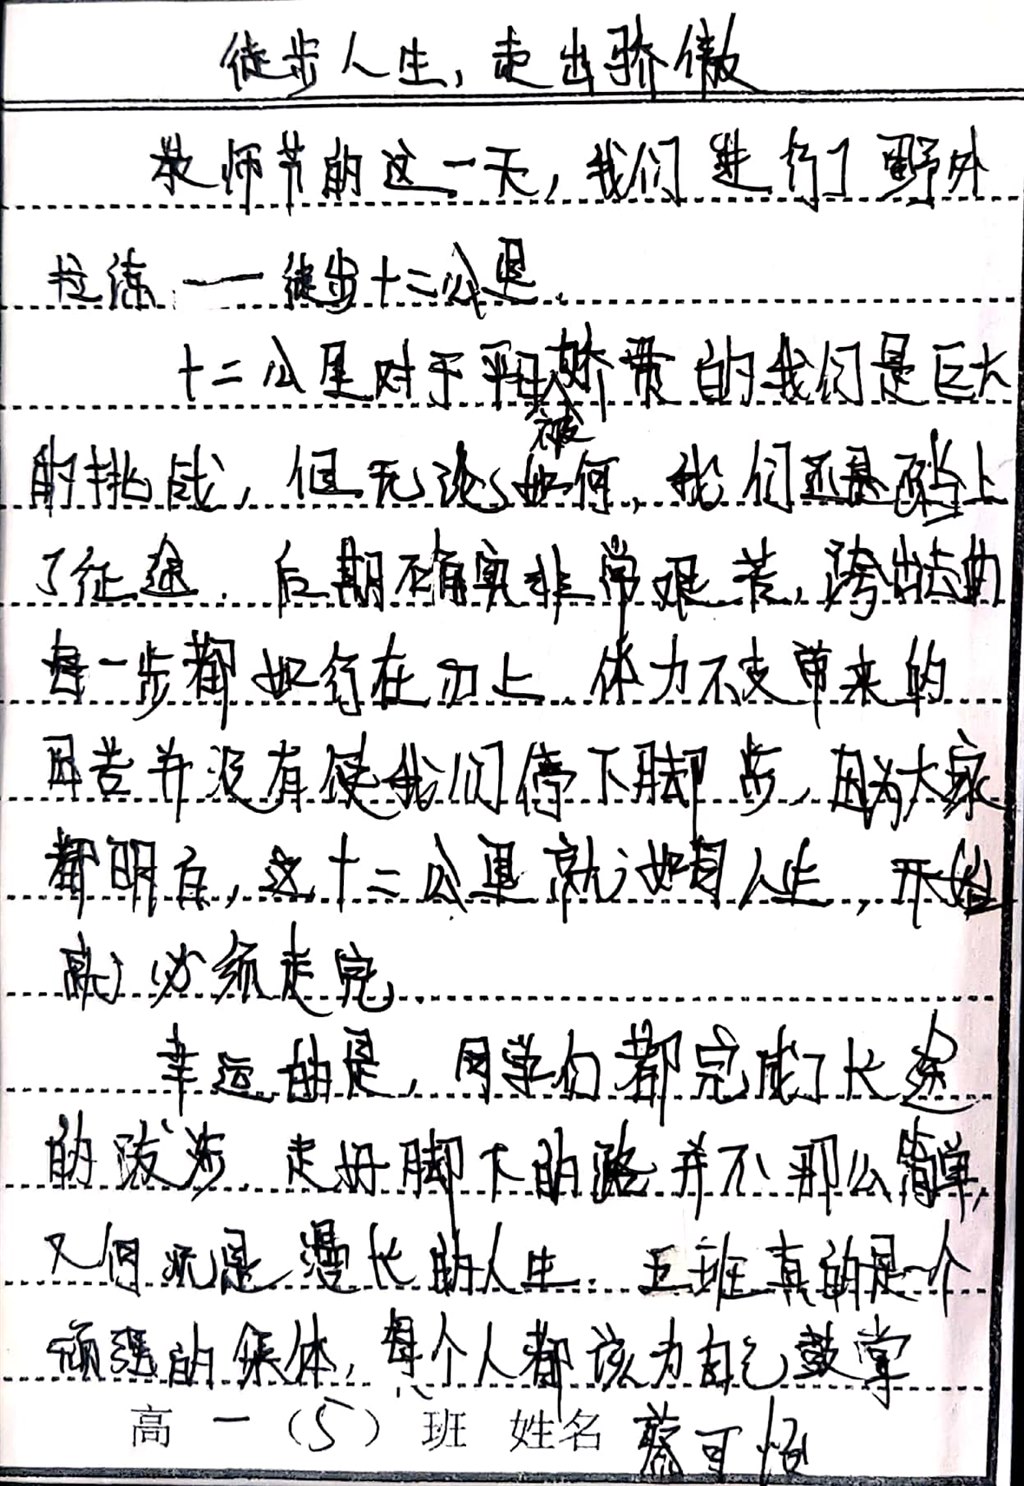 徒步人生，走出骄傲
教师节的这一天，我们进行了野外
拉练——徒步十二公里.
十二公里对于平日被娇惯的我们是巨大
的挑战，但无论如何，我们还是踏上
了征途. 后期确实非常艰苦，跨出去的
每一步都如行在刃上. 体力不支带来的
困苦并没有使我们停下脚步，因为大家
都明白，这十二公里就如同人生，开始
就必须走完.
幸运的是，同学们都完成了长途
的跋涉. 走好脚下的路并不那么简单，
又何况是漫长的人生. 五班真的是一个
顽强的集体，每个人都该为自己鼓掌
高一（5）班 姓名 蔡可